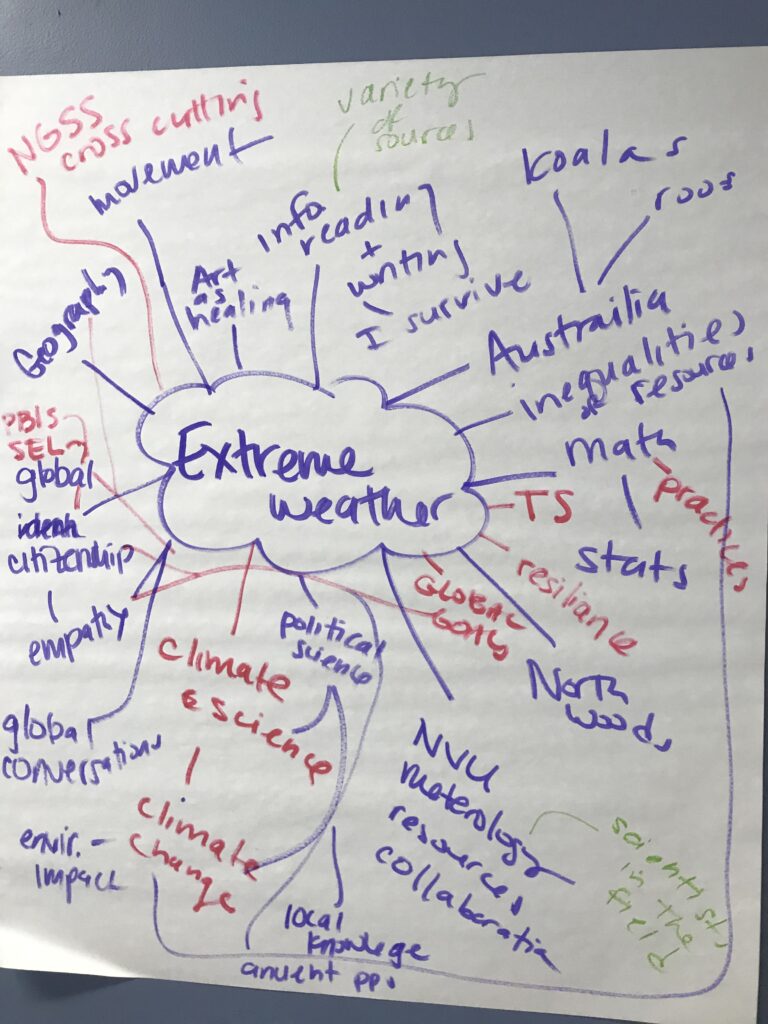 NGSS
cross cutting
movement
variety
of
sources
info
reading
+
writing
I survive
Koalas
roos
Geography
Art
as
healing
Austrailia
inequalities
of resources
PBIS
SEL
global
citizenship
empathy
Extreme
weather
math
practices
stats
TS
resiliance
GLOBAL
GOALS
North
woods
political
science
climate
& science
climate
change
global
conversations
envir.-
impact
NVU
meterology
resources
collaboration
scientists
in the
field
local
knowlege